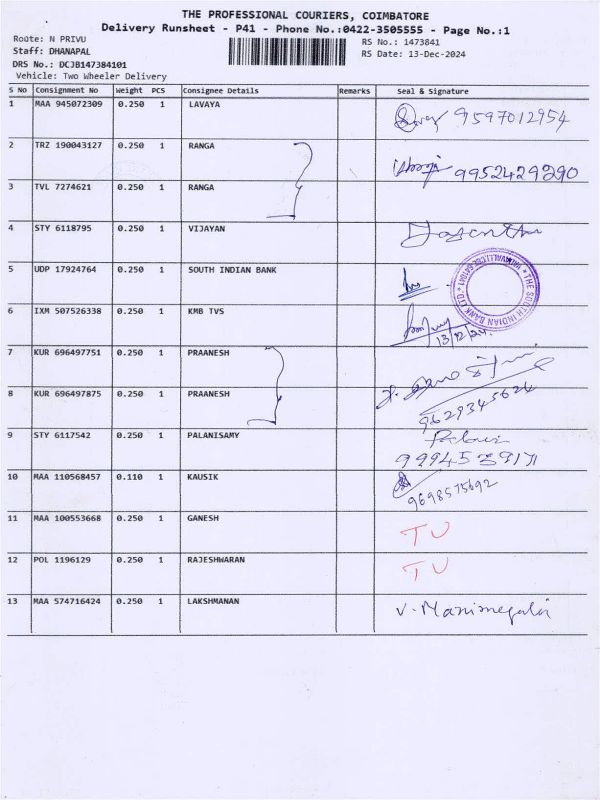 THE PROFESSIONAL COURIERS, COIMBATORE
Delivery Runsheet - P41 - Phone No.:0422-3505555 - Page No.:1
Route: N PRIVU
RS No.: 1473841
Staff: DHANAPAL
RS Date: 13-Dec-2024
DRS No.: DCJB147384101
Vehicle: Two Wheeler Delivery
S No Consignment No Weight PCS Consignee Details Remarks Seal & Signature
1 MAA 945072309 0.250 1 LAVAYA 9597012954
2 TRZ 190043127 0.250 1 RANGA 9952429290
3 TVL 7274621 0.250 1 RANGA
4 STY 6118795 0.250 1 VIJAYAN
5 UDP 17924764 0.250 1 SOUTH INDIAN BANK
* THE SOUTH INDIAN BANK LTD. *
6 IXM 507526338 0.250 1 KMB TVS
13/12/24
7 KUR 696497751 0.250 1 PRAANESH
8 KUR 696497875 0.250 1 PRAANESH 9629345624
9 STY 6117542 0.250 1 PALANISAMY
10 MAA 110568457 0.110 1 KAUSIK 9698575692
11 MAA 100553668 0.250 1 GANESH TU
12 POL 1196129 0.250 1 RAJESHWARAN TU
13 MAA 574716424 0.250 1 LAKSHMANAN V. Manimegalai